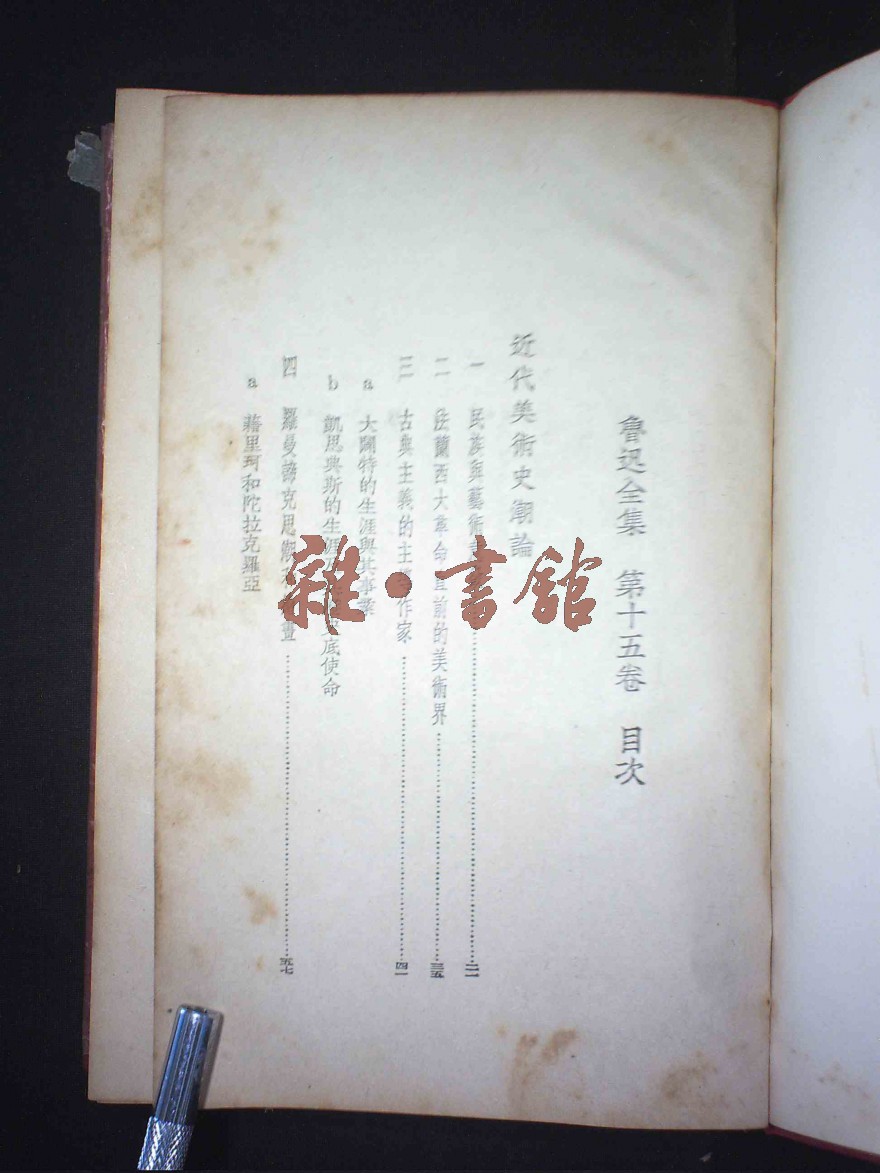 魯迅全集　第十五卷　目次
近代美術史潮論
一　民族與藝術……二一
二　法蘭西大革命直前的美術界……三五
三　古典主義的主導作家……四一
a　大闢特的生涯與其事業
b　凱思典斯的生涯底使命
四　羅曼諦克思潮和畫……五七
a　藉里珂和陀拉克羅亞
雜·書館